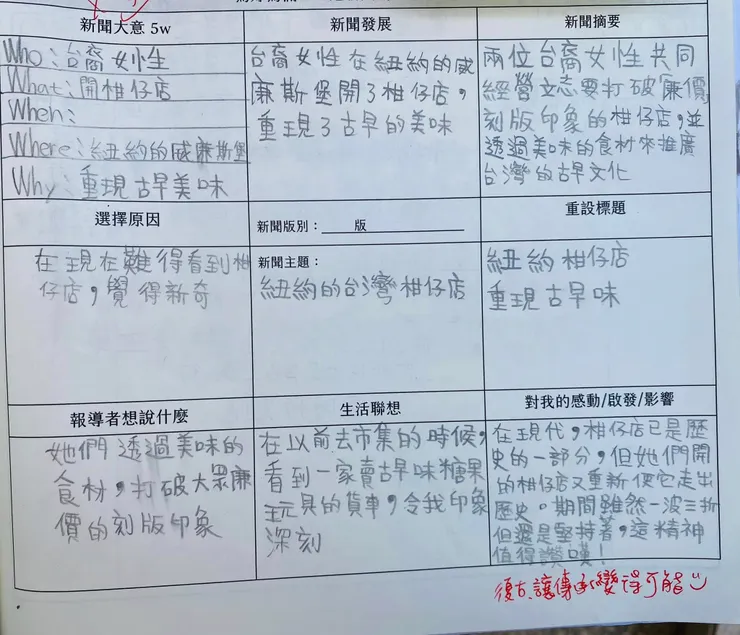 新聞大意 5w
Who：台裔女性
What：開柑仔店
When：
Where：紐約的威廉斯堡
Why：重現古早美味
新聞發展
台裔女性在紐約的威
廉斯堡開了柑仔店，
重現了古早的美味
新聞摘要
兩位台裔女性共同
經營立志要打破廉價
刻版印象的柑仔店，並
透過美味的食材來推廣
台灣的古早文化
選擇原因
在現在難得看到柑
仔店，覺得新奇
新聞版別：版
新聞主題：
紐約的台灣柑仔店
重設標題
紐約柑仔店
重現古早味
報導者想說什麼
她們透過美味的
食材，打破大眾廉
價的刻版印象
生活聯想
在以前去市集的時候，
看到一家賣古早味糖果
玩具的貨車，令我印象
深刻
對我的感動/啟發/影響
在現代，柑仔店已是歷
史的一部分，但她們開
的柑仔店又重新使它走出
歷史。期間雖然一波三折
但還是堅持著，這精神
值得讚嘆！
復古，讓傳承變得可能